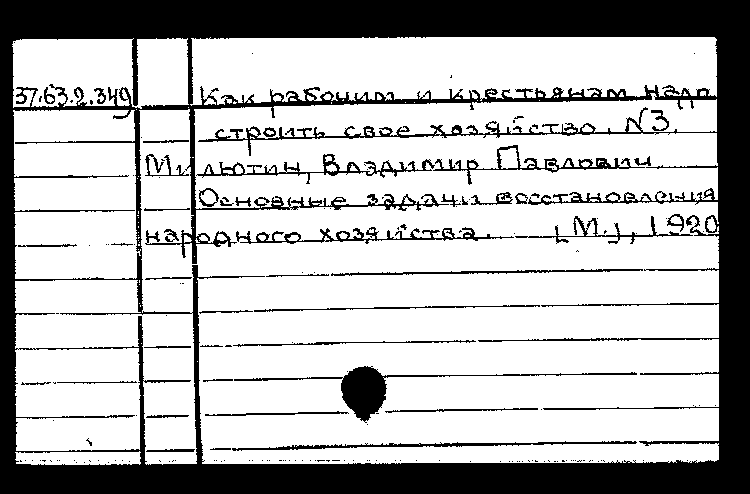 37.63.2.349 Как рабочим и крестьянам надо
строить свое хозяйство. N3.
Милютин, Владимир Павлович
Основные задачи восстановления
народного хозяйства. [М.], 1920